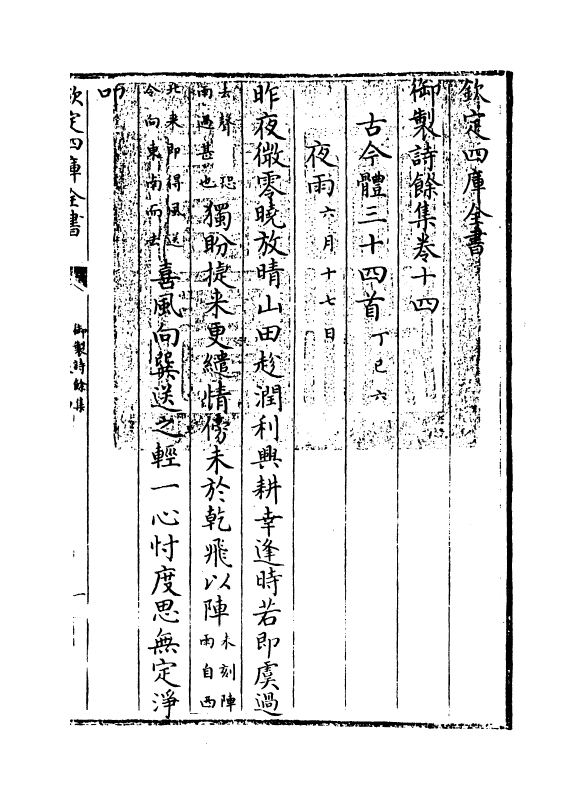 欽定四庫全書
御製詩餘集卷十四
古今體三十四首丁巳六
夜雨六月十七日
昨夜微零曉放晴山田趁潤利興耕幸逢時若即虞過
去聲恐雨過甚也獨盼捷来更繾情傍未於乾飛以陣未刻陣雨自西
北来即得風送令向東南而去喜風向巽送之輕一心忖度思無定淨
叩
欽定四庫全書
御製詩餘集
一